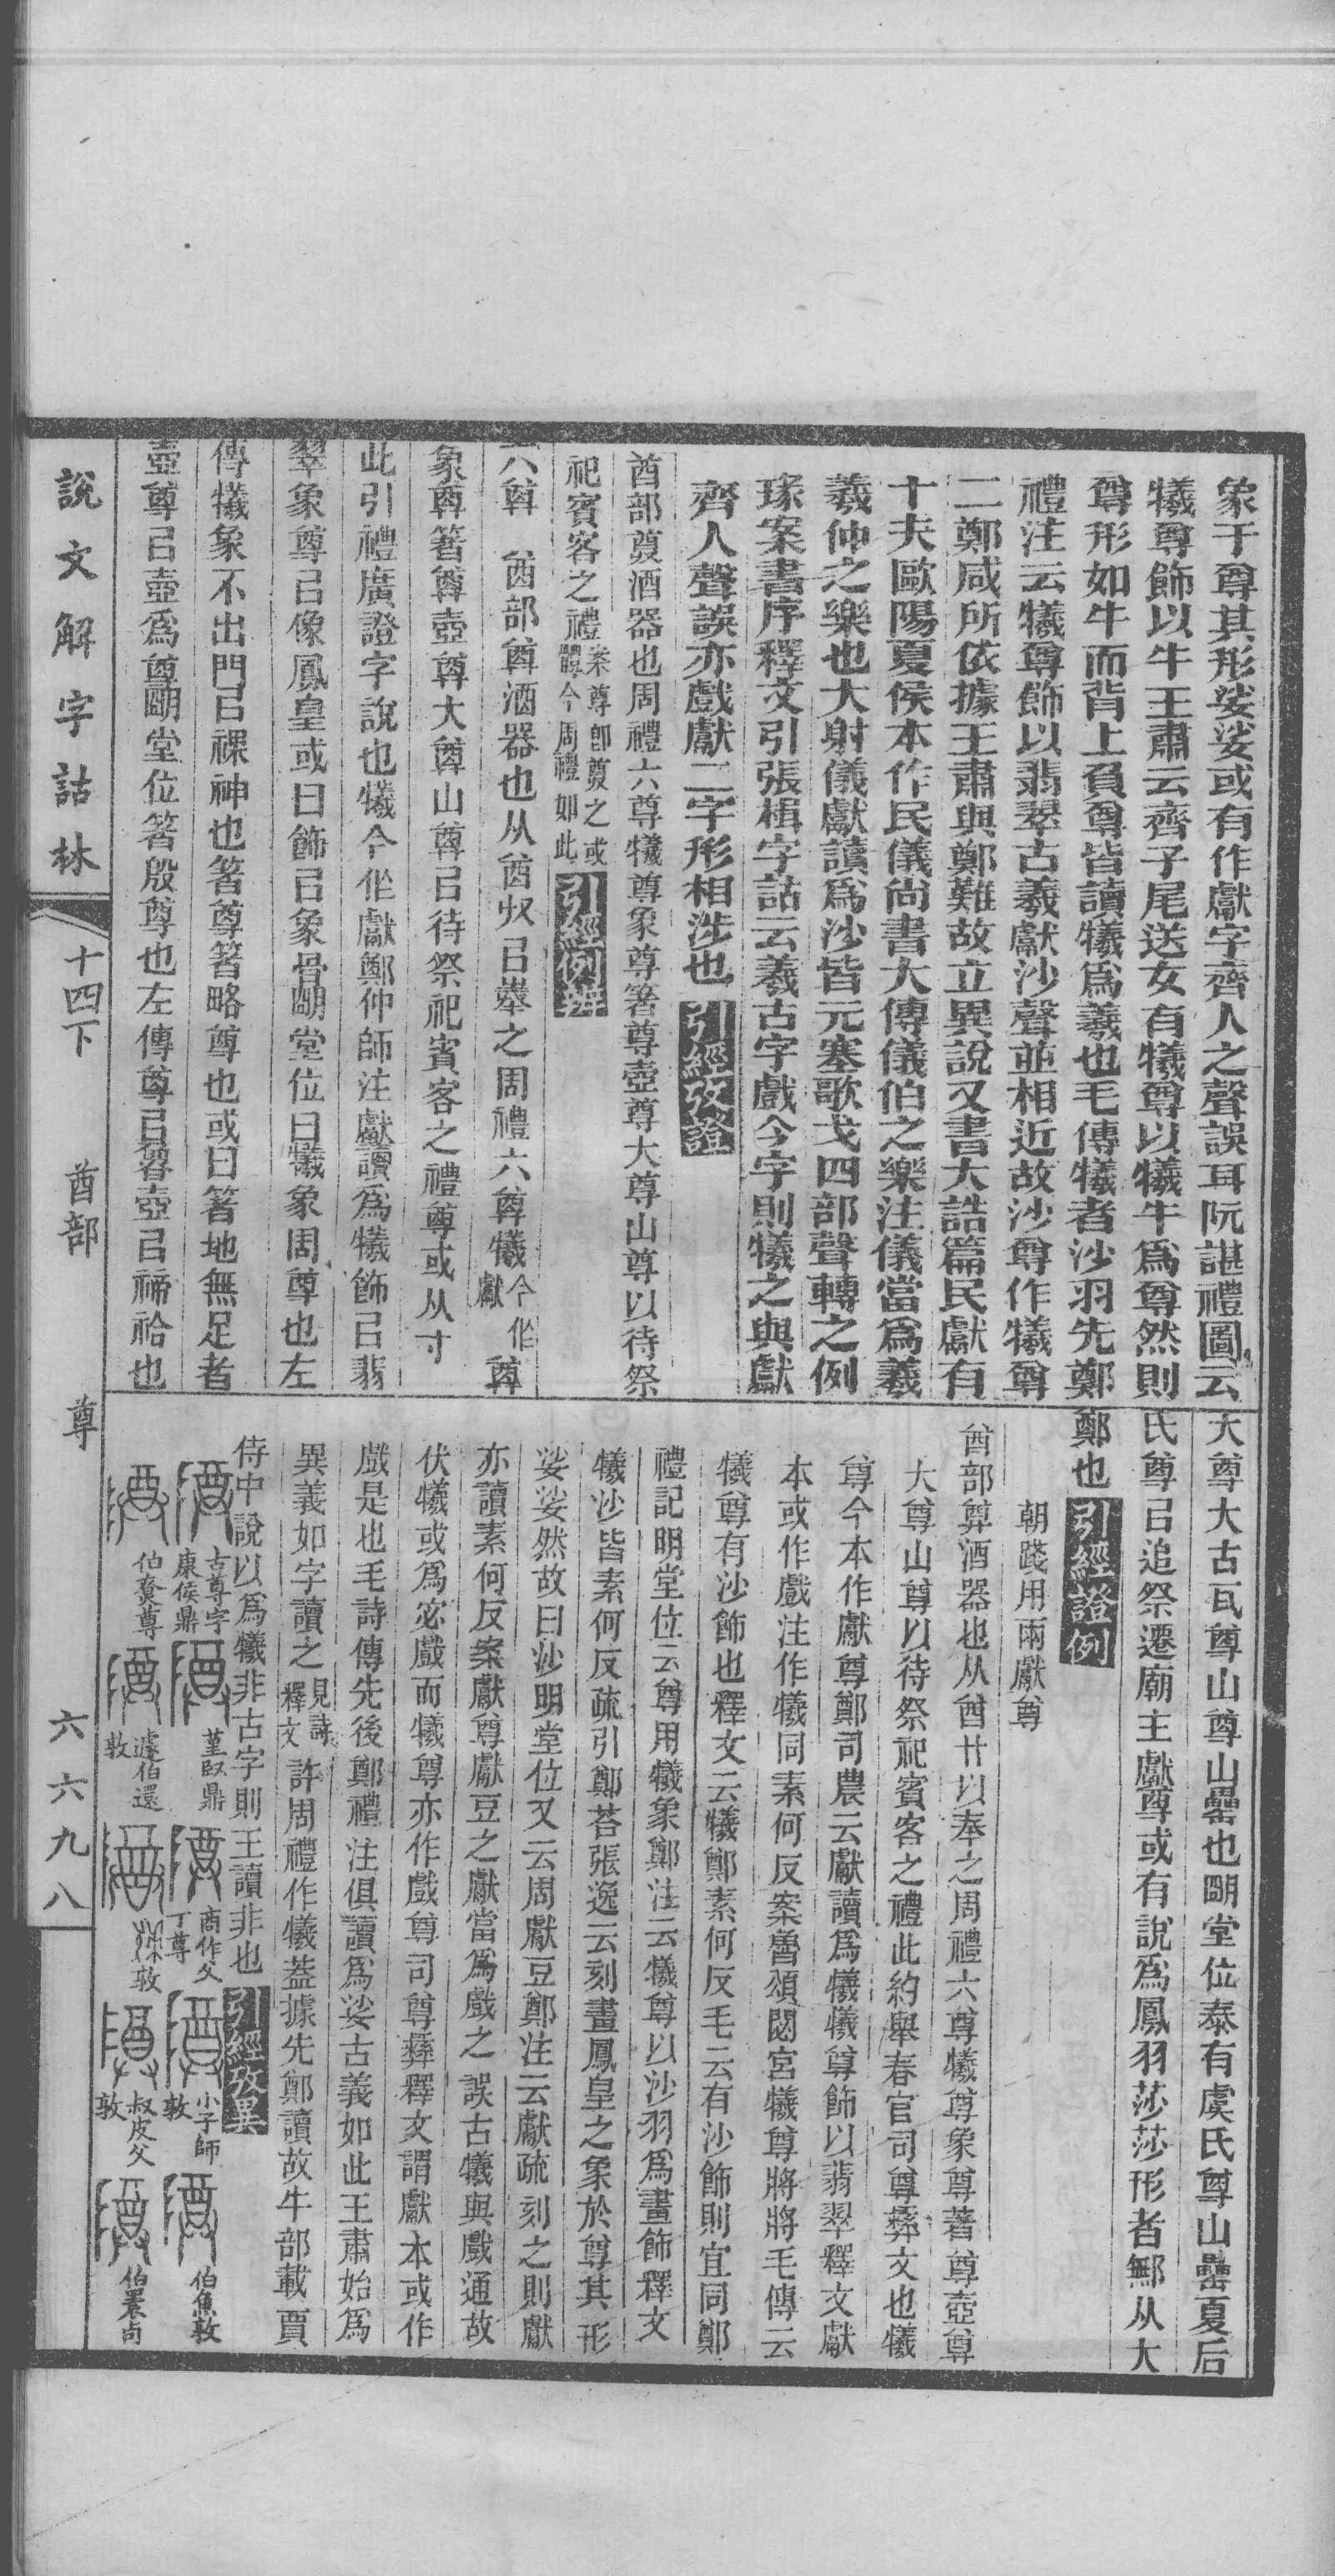 象于尊其形娑娑或有作獻字齊人之聲誤耳阮諶禮圖云
犧尊飾以牛王肅云齊子尾送女有犧尊以犧牛爲尊然則
尊形如牛而背上負尊皆讀犧爲羲也毛傳犧者沙羽先鄭
禮注云犧尊飾以翡翠古羲獻沙聲並相近故沙尊作犧尊
二鄭咸所依據王肅與鄭難故立異說又書大誥篇民獻有
十夫歐陽夏侯本作民儀尚書大傳儀伯之樂注儀當爲羲
羲仲之樂也大射儀獻讀爲沙皆元寒歌戈四部聲轉之例
琭案書序釋文引張楫字詁云羲古字戲今字則犧之與獻
齊人聲誤亦戲獻二字形相涉也 引經攷證
酋部奠酒器也周禮六尊犧尊象尊箸尊壺尊大尊山尊以待祭
祀賓客之禮案尊卽奠之或體今周禮如此 引經例辨
六尊 酋部尊酒器也从酋廾㠯奉之周禮六尊犧今作獻尊
象尊箸尊壺尊大尊山尊㠯待祭祀賓客之禮尊或从寸
此引禮廣證字說也犧今作獻鄭仲師注獻讀爲犧飾㠯翡
翠象尊㠯像鳳皇或曰飾㠯象骨朙堂位曰犧象周尊也左
傳犧象不出門㠯祼神也箸尊箸略尊也或曰箸地無足者
壺尊㠯壺爲尊朙堂位箸殷尊也左傳尊㠯魯壺㠯禘祫也
大尊大古瓦尊山尊山罍也朙堂位泰有虞氏尊山罍夏后
氏尊㠯追祭遷廟主獻尊或有說爲鳳羽莎莎形者鄦从大
鄭也 引經證例
朝踐用兩獻尊
酋部尊酒器也从酋廾以奉之周禮六尊犧尊象尊著尊壺尊
大尊山尊以待祭祀賓客之禮此約舉春官司尊彝文也犧
尊今本作獻尊鄭司農云獻讀爲犧犧尊飾以翡翠釋文獻
本或作戲注作犧同素何反案魯頌閟宮犧尊將將毛傳云
犧尊有沙飾也釋文云犧鄭素何反毛云有沙飾則宜同鄭
禮記明堂位云尊用犧象鄭注云犧尊以沙羽爲畫飾釋文
犧沙皆素何反疏引鄭荅張逸云刻畫鳳皇之象於尊其形
娑娑然故曰沙明堂位又云周獻豆鄭注云獻疏刻之則獻
亦讀素何反案獻尊獻豆之獻當爲戲之誤古犧與戲通故
伏犧或爲宓戲而犧尊亦作戲尊司尊彝釋文謂獻本或作
戲是也毛詩傳先後鄭禮注俱讀爲娑古義如此王肅始爲
異義如字讀之見詩釋文許周禮作犧葢據先鄭讀故牛部載賈
侍中說以爲犧非古字則王讀非也 引經攷異
古尊字康侯鼎
堇臤鼎
商作父丁尊
小子師敦
伯魚敦
伯尊
遽伯還敦
敦
叔皮父敦
伯卣
說文解字詁林 十四下 酋部 尊 六六九八